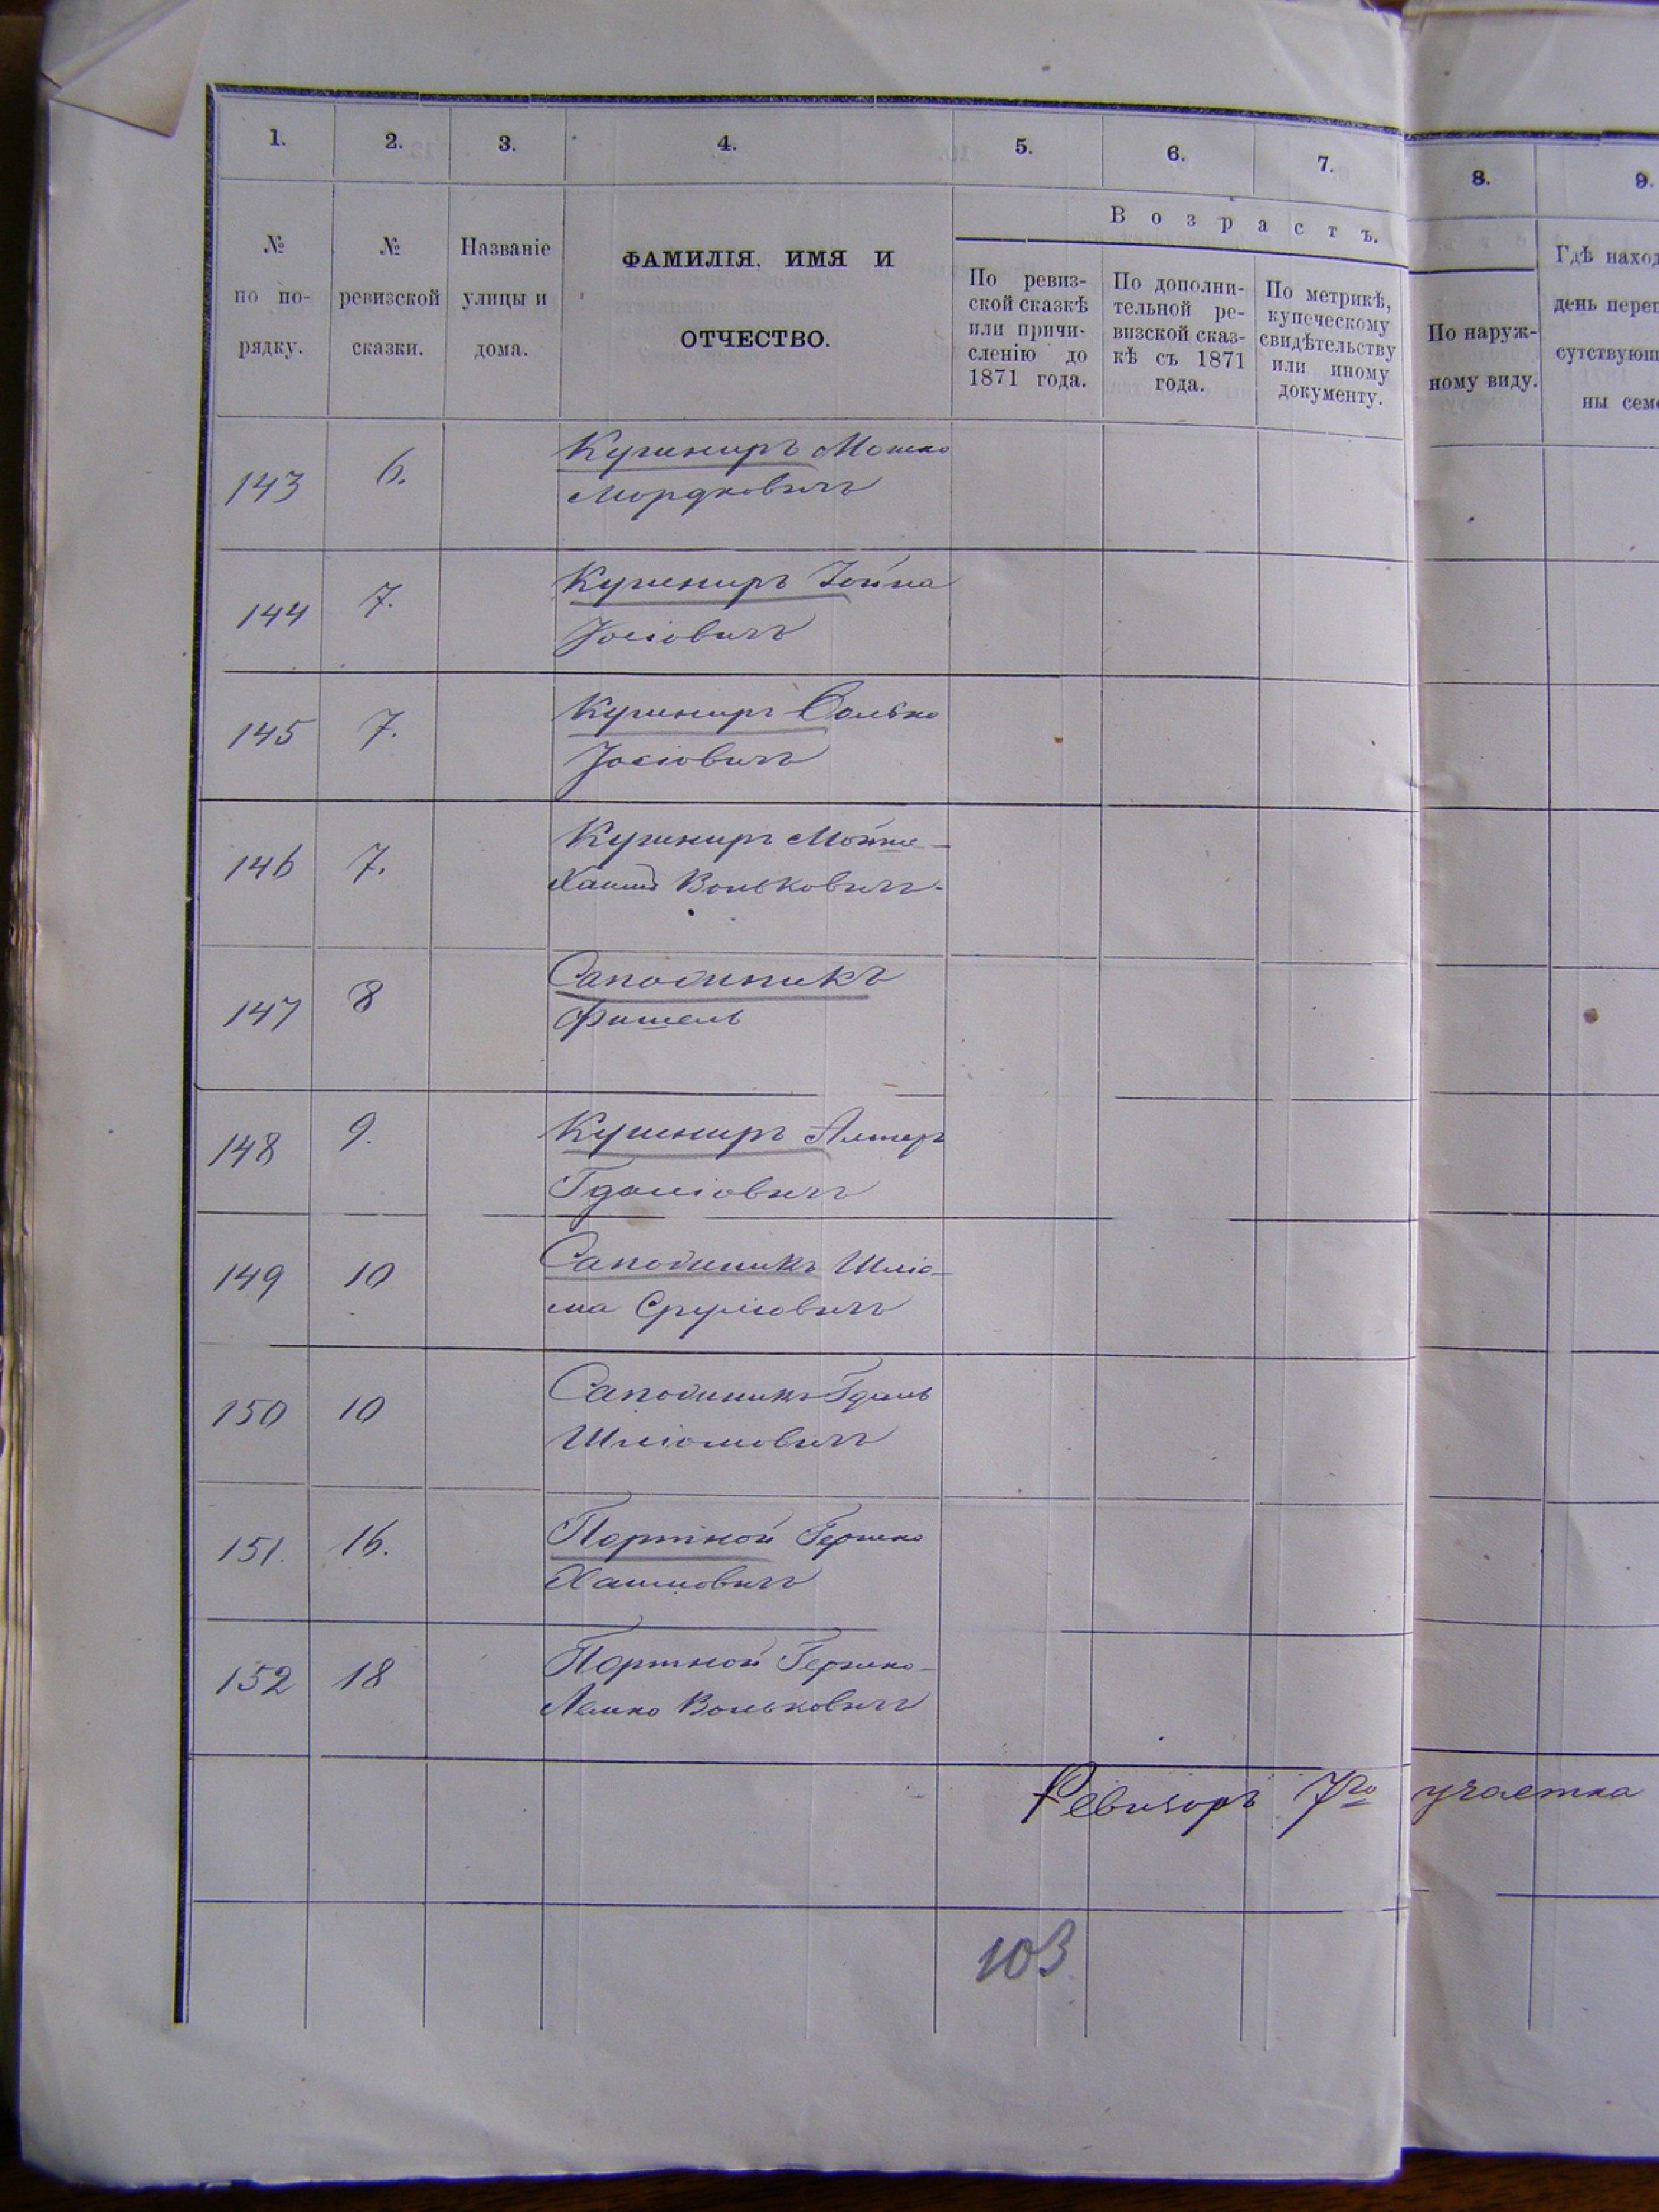 1. 2. 3. 4. 5. 6. 7. 8. 9.
Возрастъ.
№ по по- рядку.
№ ревизской сказки.
Названіе улицы и дома.
ФАМИЛІЯ, ИМЯ И
ОТЧЕСТВО.
По ревиз-
ской сказкѣ
или причи-
сленію до
1871 года.
По дополни-
тельной ре-
визской сказ-
кѣ съ 1871
года.
По метрикѣ,
купеческому
свидѣтельству
или иному
документу.
По наруж-
ному виду.
Гдѣ наход
день переп
сутствующ
ны сем
143 6. Кушниръ Мошко
Мордковичъ
144 7. Кушниръ Іойна
Іосіовичъ
145 7. Кушниръ
Іосіовичъ
146 7. Кушниръ
Хаимъ Вольковичъ
147 8 Сапожникъ
Фишель
148 9. Кушниръ Алтеръ
Гдаліовичъ
149 10 Сапожникъ Шліо-
ма Сруліовичъ
150 10 Сапожникъ Гдаль
Шліомовичъ
151. 16. Портной Гершко
Хаимовичъ
152 18 Портной Гершко-
Лейко Вольковичъ
Ревизоръ 7го участка
103